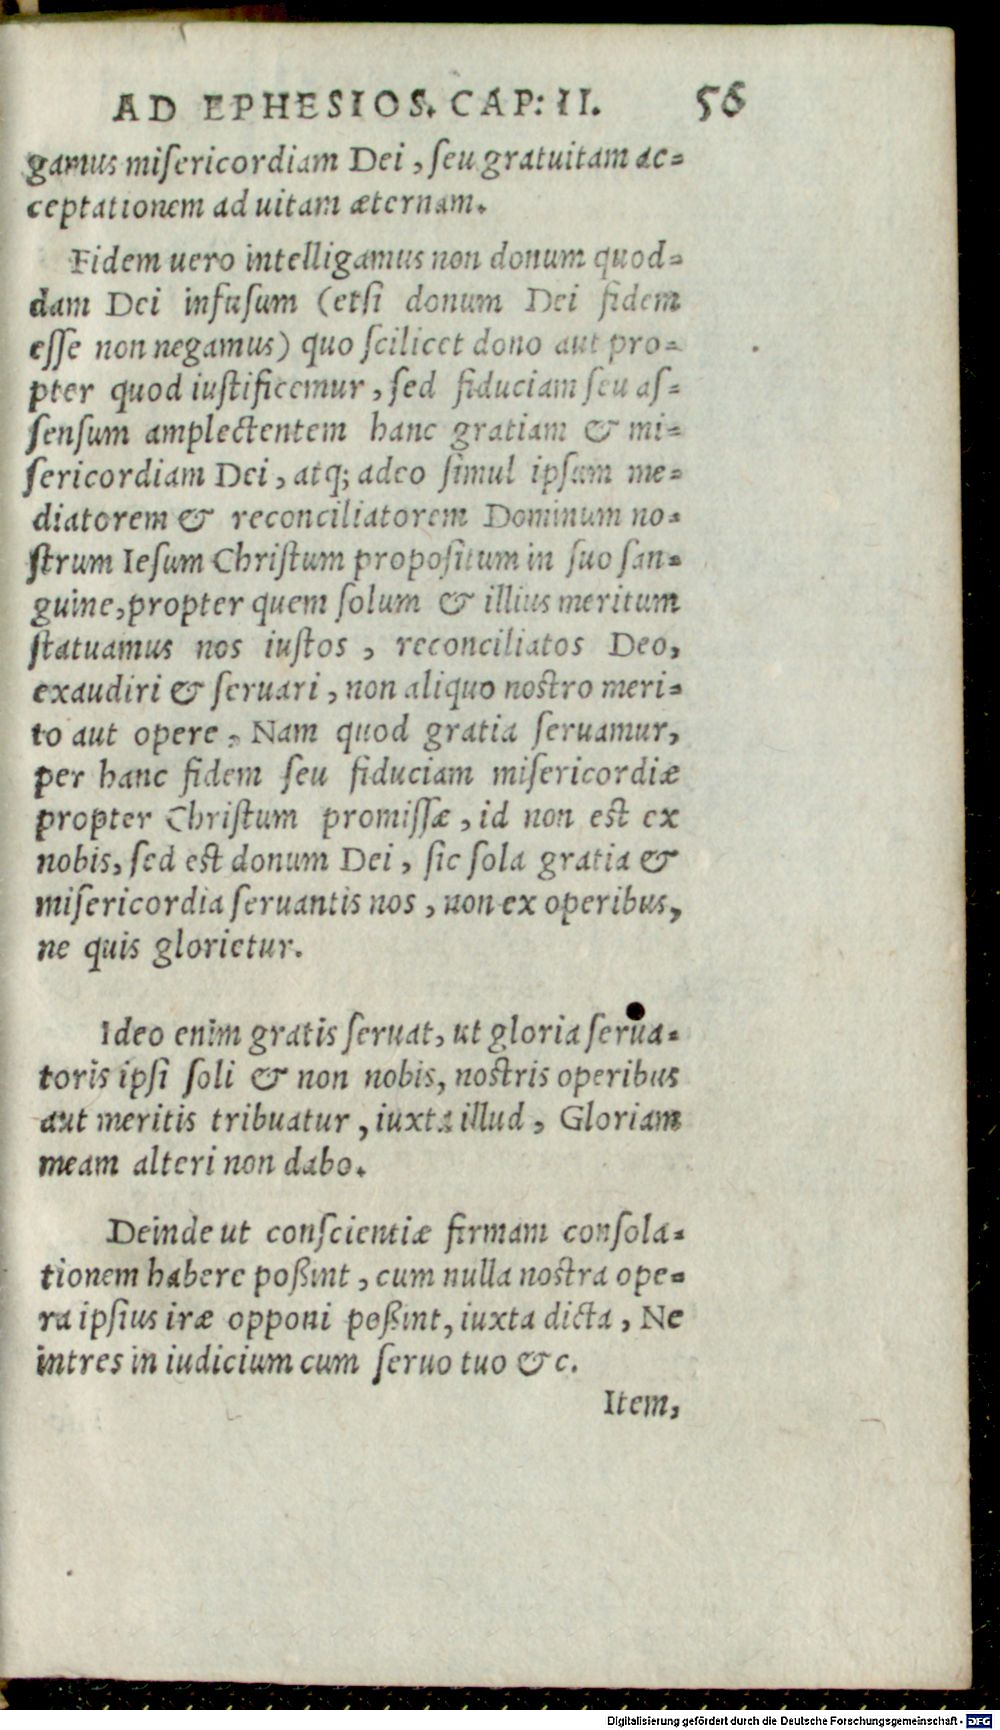 AD EPHESIOS. CAP: II. 56
gamus miſericordiam Dei, ſeu gratuitam ac=
ceptationem ad uitam æternam.
Fidem uero intelligamus non donum quod=
dam Dei infuſum (etſi donum Dei fidem
eſſe non negamus) quo ſcilicet dono aut pro=
pter quod iuſtificemur, ſed fiduciam ſeu aſ=
ſenſum amplectentem hanc gratiam & mi=
ſericordiam Dei, atq; adeo ſimul ipſum me=
diatorem & reconciliatorem Dominum no=
ſtrum Ieſum Chriſtum propoſitum in ſuo ſan=
guine, propter quem ſolum & illius meritum
ſtatuamus nos iuſtos, reconciliatos Deo,
exaudiri & ſeruari, non aliquo noſtro meri=
to aut opere. Nam quod gratia ſeruamur,
per hanc fidem ſeu fiduciam miſericordiæ
propter Chriſtum promiſſæ, id non eſt ex
nobis, ſed eſt donum Dei, ſic ſola gratia &
miſericordia ſeruantis nos, non ex operibus,
ne quis glorietur.
Ideo enim gratis ſeruat, ut gloria ſerua=
toris ipſi ſoli & non nobis, noſtris operibus
aut meritis tribuatur, iuxta illud, Gloriam
meam alteri non dabo.
Deinde ut conſcientiæ firmam conſola=
tionem habere poßint, cum nulla noſtra ope=
ra ipſius iræ opponi poßint, iuxta dicta, Ne
intres in iudicium cum ſeruo tuo &c.
Item,
Digitalisierung gefördert durch die Deutsche Forschungsgemeinschaft - DFG